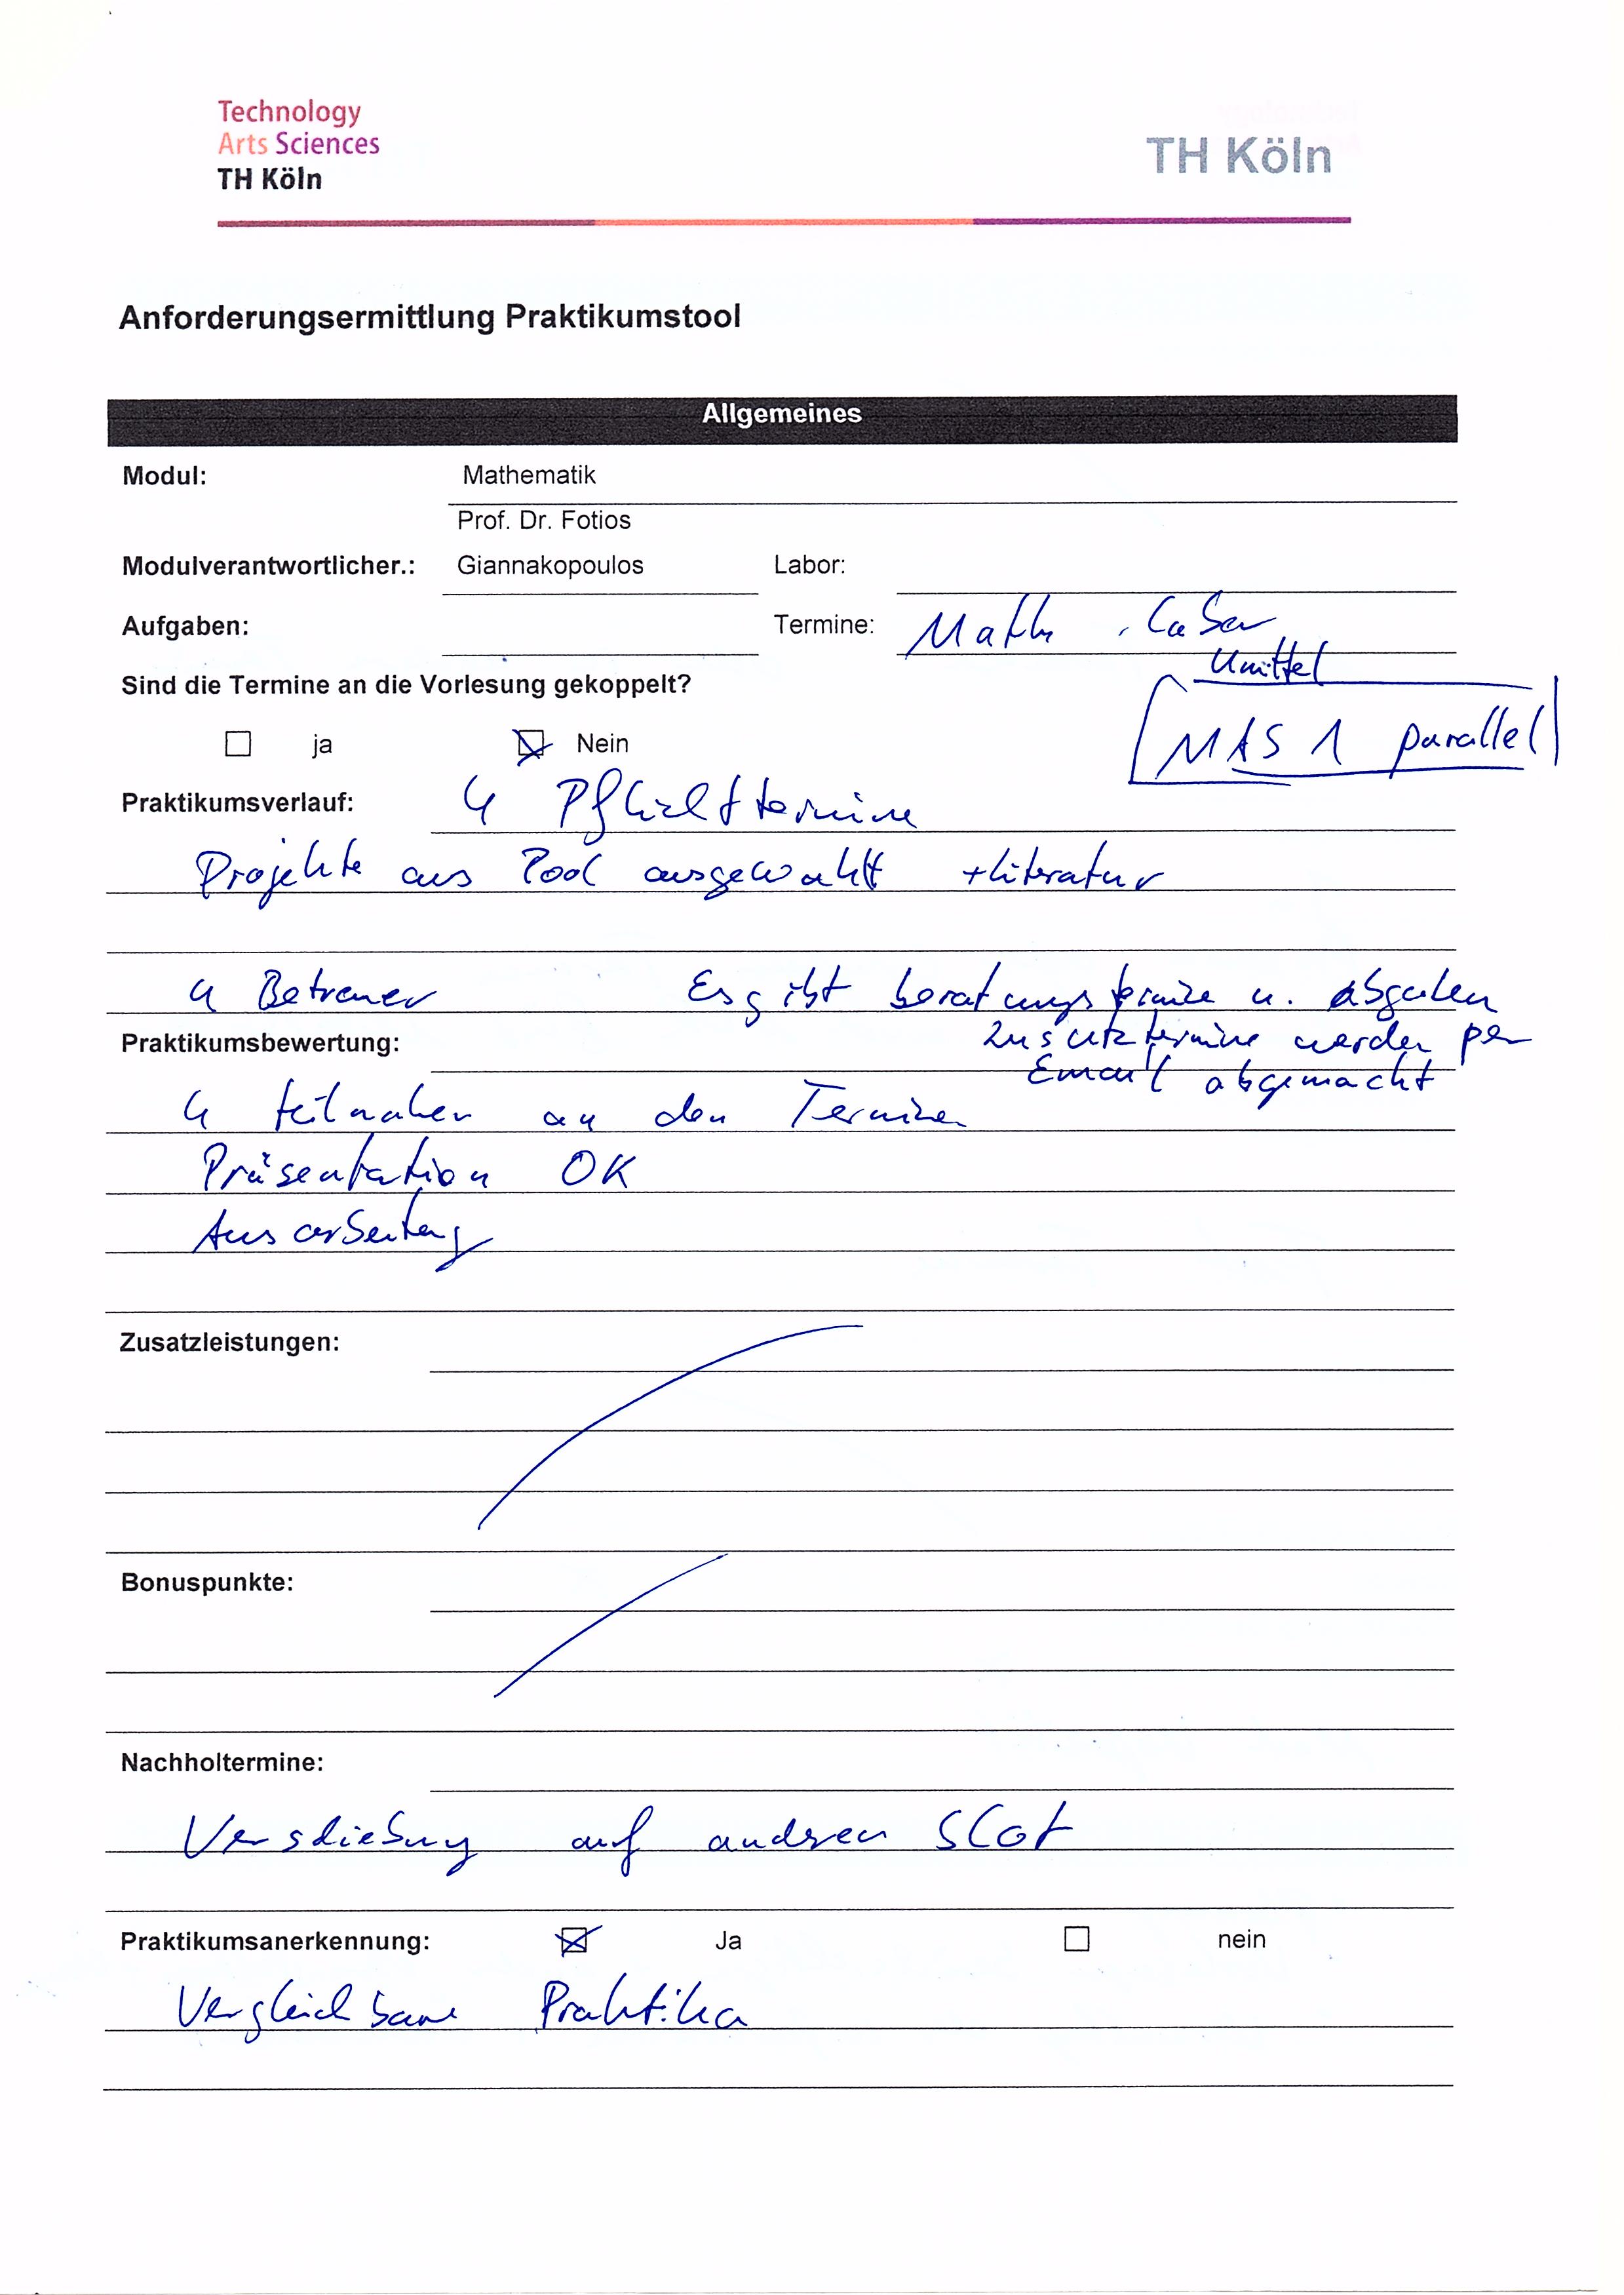 Technology
Arts Sciences
TH Köln
TH Köln
Anforderungsermittlung Praktikumstool
Allgemeines
Modul: Mathematik
Prof. Dr. Fotios
Modulverantwortlicher.: Giannakopoulos Labor:
Aufgaben: Termine: Math. Labor
Sind die Termine an die Vorlesung gekoppelt?
MAS 1 parallel
ja Nein
Praktikumsverlauf: 4 Pflichttermine
Projekte aus Pool ausgewählt + literatur
4 Betreuer Es gibt beratungstermine u. abgaben
Zusatztermine werden per
Praktikumsbewertung:
Email abgemacht
4 teilnahmen an den Terminen
Präsentation OK
Ausarbeitung
Zusatzleistungen:
Bonuspunkte:
Nachholtermine:
Verschiebung auf anderen Slot
Praktikumsanerkennung: Ja nein
Vergleichbare Praktika